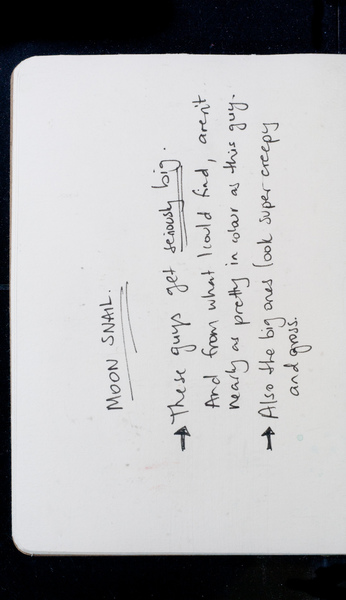 MOON SNAIL.
→ These guys get seriously big.
And from what I could find, aren't
nearly as pretty in colour as this guy.
→ Also the big ones look super creepy
and gross.